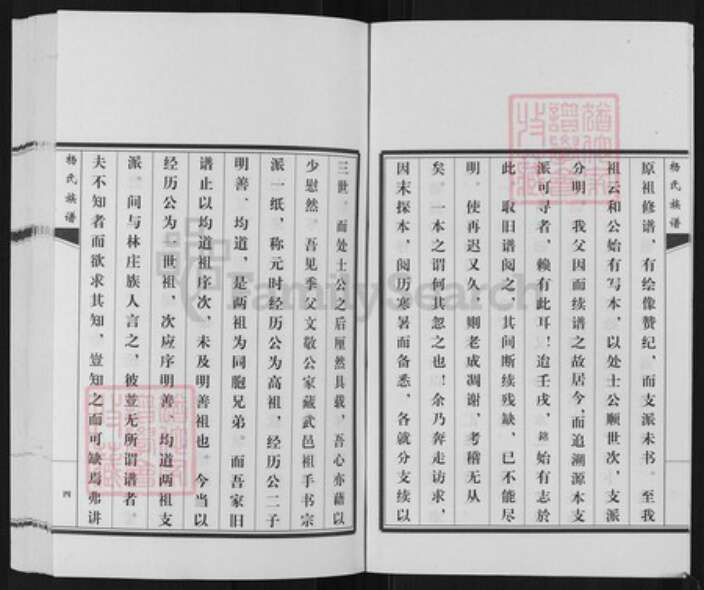 杨氏族谱
原祖修谱，有绘像赞纪，而支派未书。至我
祖云和公始有写本，以处士公顺世次，支派
分明，我父因而续谱之故居今，而追溯源本支
派可寻者，赖有此耳！迨壬戌，銘始有志於
此，取旧谱阅之，其间断续残缺，已不能尽
明，使再迟又久，则老成凋谢，考稽无从
矣。一本之谓何其忽之也！余乃奔走访求，
因末探本，阅历寒暑而备悉，各就分支续以
三世，而处士公之后厘然具载，吾心亦藉以
少慰然，吾见季父文敬公家藏武邑祖手书宗
派一纸，称元时经历公为高祖，经历公二子
明善、均道，是两祖为同胞兄弟。而吾家旧
谱止以均道祖序次，未及明善祖也。今当以
经历公为一世祖，次应序明善、均道两祖支
派。间与林庄族人言之，彼并无所谓谱者。
夫不知者而欲求其知，豈知之而可缺焉弗讲
杨氏族谱
四
FamilySearch